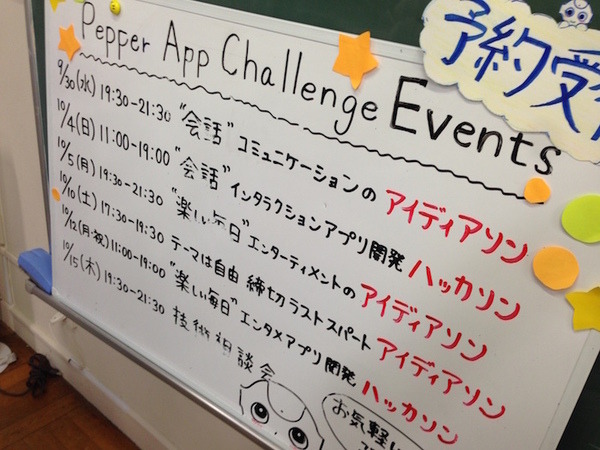 Pepper App Challenge Events
予約受
9/30(水) 19:30-21:30 "会話" コミュニケーションの アイディアソン
10/4(日) 11:00-19:00 "会話" インタラクションアプリ開発 ハッカソン
10/5(月) 19:30-21:30 "楽しい毎日" エンターティメントの アイディアソン
10/10(土) 17:30-19:30 テーマは自由 締切ラストスパート アイディアソン
10/12(月・祝) 11:00-19:00 "楽しい毎日" エンタメアプリ開発 ハッカソン
10/15(木) 19:30-21:30 技術相談会
お気軽に